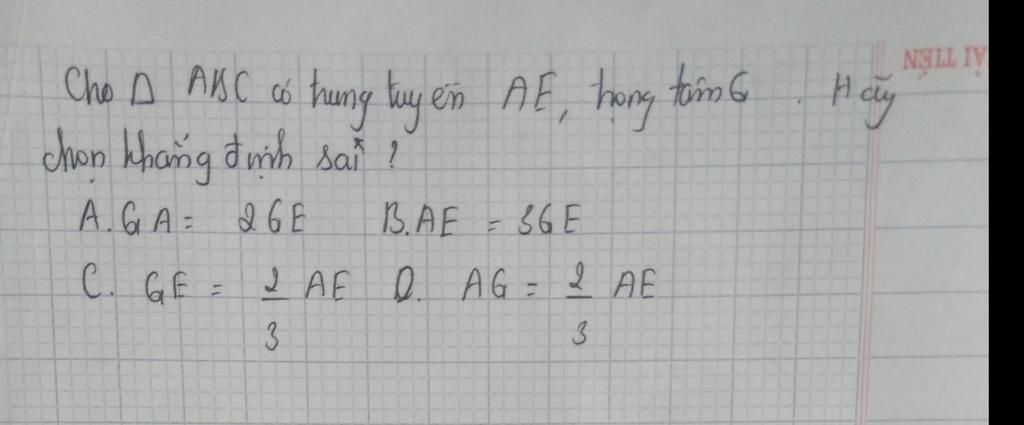 Cho Δ ABC có trung tuyến AE, trọng tâm G . Hãy
chọn khẳng định sai ?
A. GA = 2GE B. AE = 3GE
C. GE = 2/3 AE D. AG = 2/3 AE
ẢI TIẾN